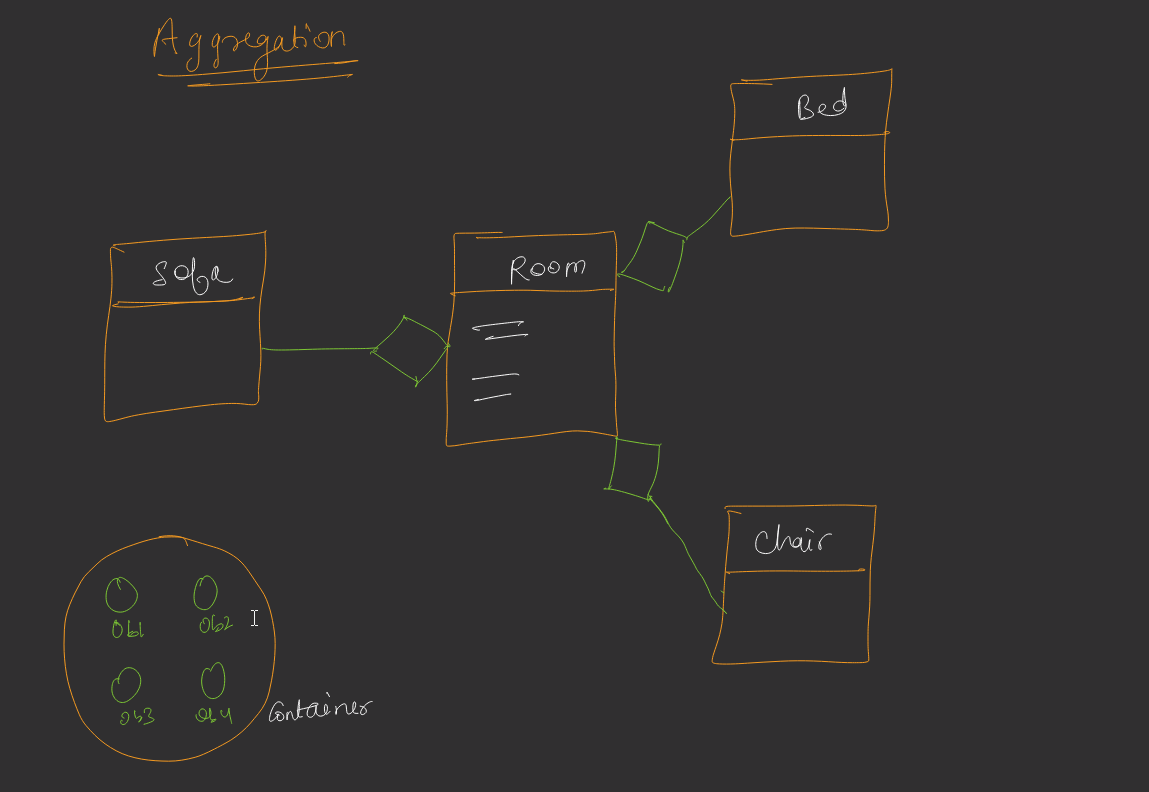 Aggregation
Bed
Sofa
Room
Chair
Ob1
Ob2
Ob3
Ob4
Container